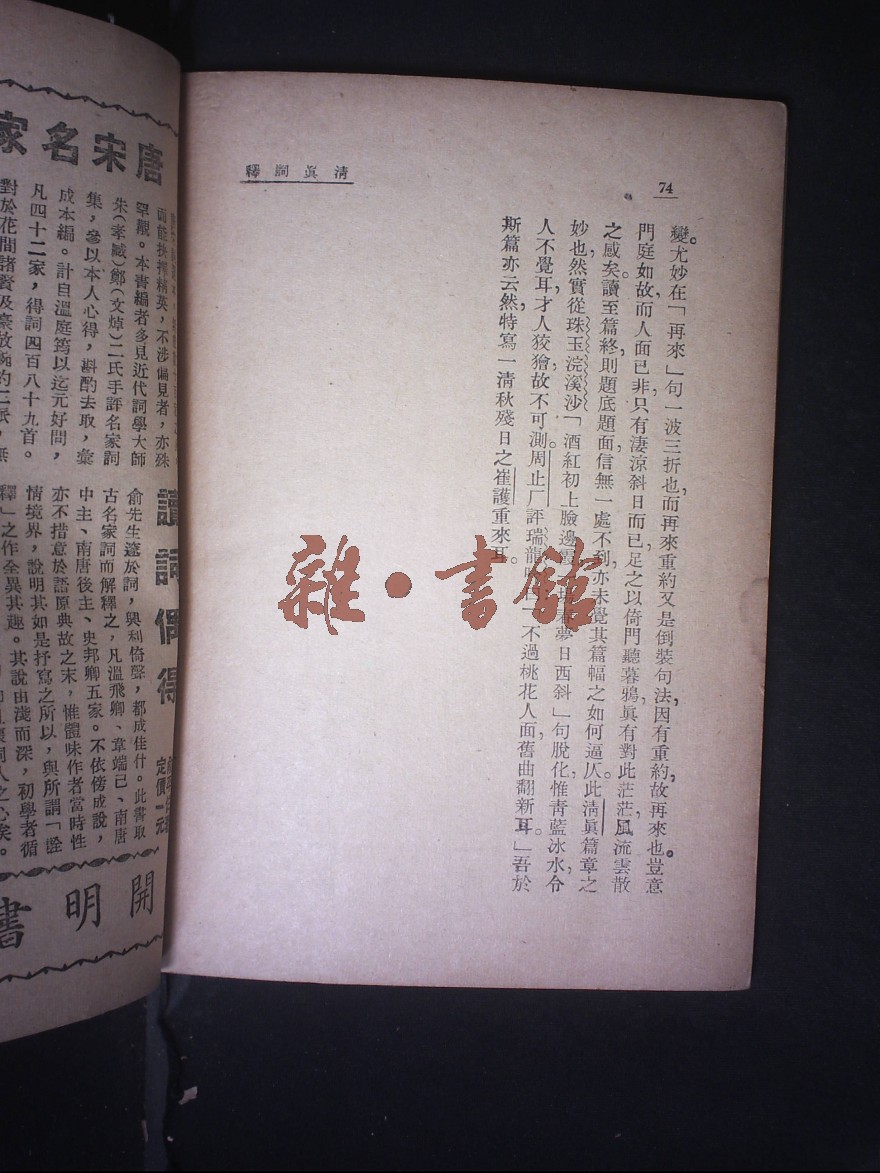 74
清眞詞釋
變。尤妙在「再來」句一波三折也,而再來重約又是倒裝句法,因有重約,故再來也。豈意
門庭如故而人面已非,只有淒涼斜日而已,足之以倚門聽暮鴉,眞有對此茫茫,風流雲散
之感矣。讀至篇終,則題底題面信無一處不到,亦未覺其篇幅之如何逼仄。此清眞篇章之
妙也,然實從珠玉浣溪沙「酒紅初上臉邊霞 春夢日西斜」句脫化,惟青藍冰水,令
人不覺耳,才人狡獪,故不可測。周止厂評瑞龍吟 不過桃花人面,舊曲翻新耳。」吾於
斯篇亦云然,特寫一清秋殘日之崔護重來耳。
雜·書館
唐宋名家
面能抉擇精英,不涉偏見者,亦殊
罕覯。本書編者多見近代詞學大師
朱(孝臧)鄭(文焯)二氏手評名家詞
集,參以本人心得,斟酌去取,彙
成本編。計自溫庭筠以迄元好問,
凡四十二家,得詞四百八十九首。
對於花間諸賢及豪放婉約二派,無
讀詞偶得
定價一元
俞先生邃於詞,興到倚聲,都成佳什。此書取
古名家詞而解釋之,凡溫飛卿、韋端己、南唐
中主、南唐後主、史邦卿五家。不依傍成說,
亦不措意於語原典故之末,惟體味作者當時性
情境界,說明其如是抒寫之所以,與所謂「詮
釋」之作全異其趣。其說由淺而深,初學者循
詞人之心矣。
開明書